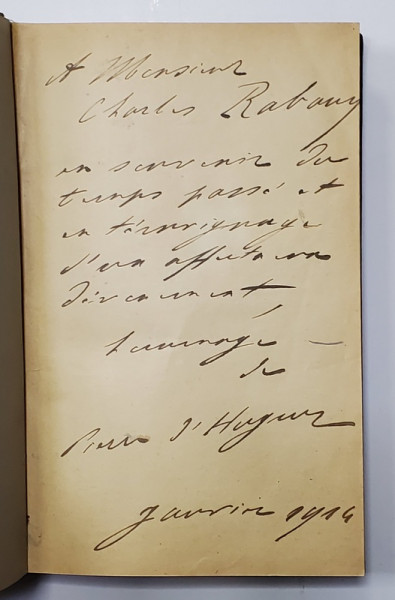 A Monsieur
Charles Rabany
en souvenir du
temps passé et
en témoignage
d'un affectueux
dévouement
hommage
de
Pierre d'Hugues
Janvier 1914